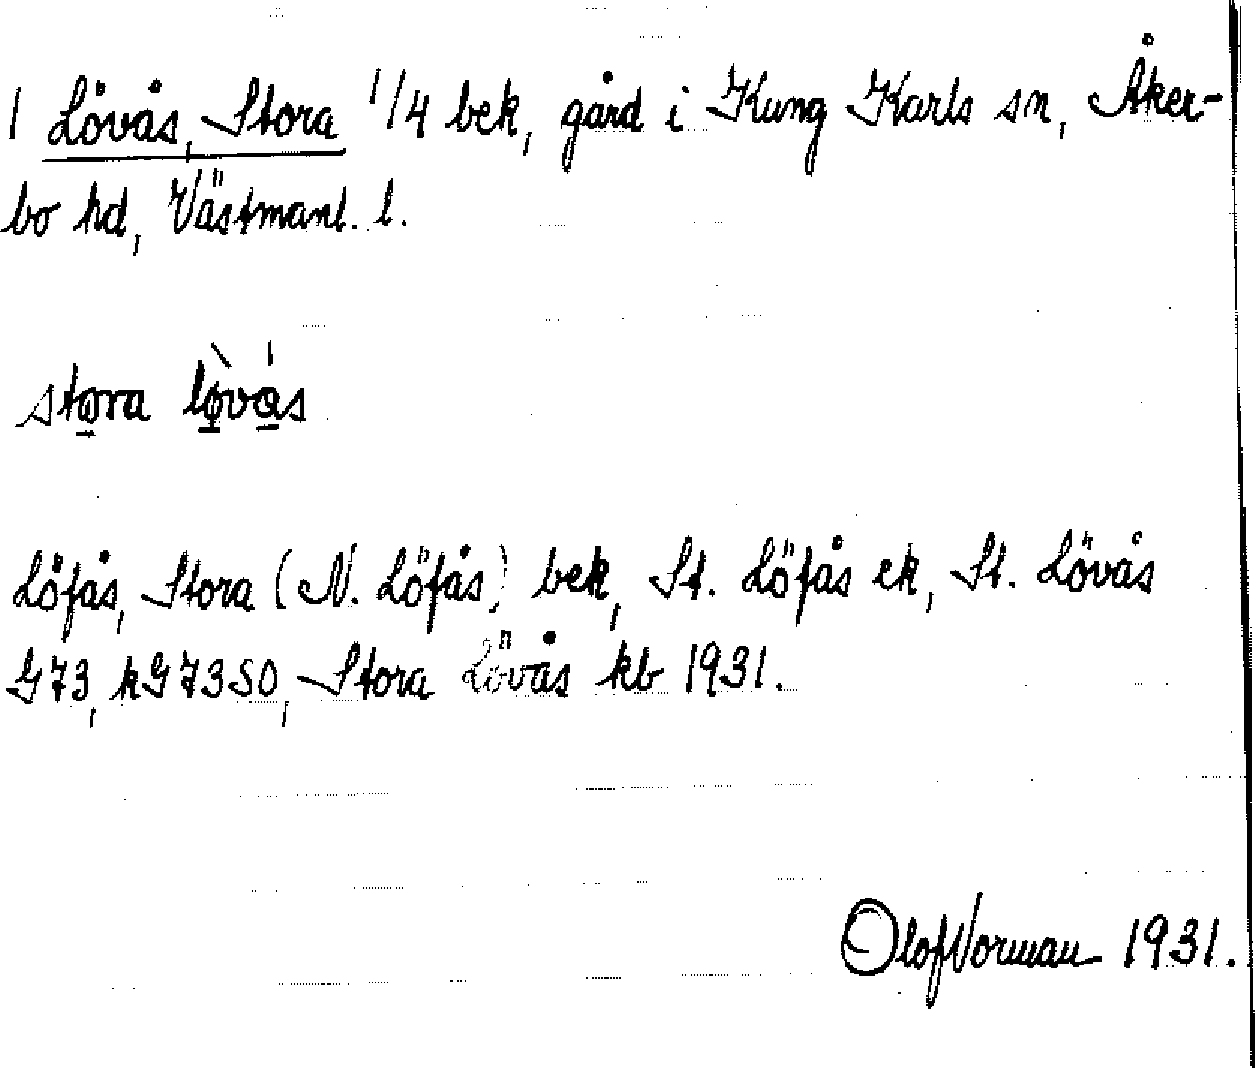 1 Lövås, Stora 1/4 bek, gård i Kung Karls sn, Åker-
bo hd, Västmanl. l.
stora lø̱̀vá̱s
Löfås, Stora (N. Löfås) bek, St. Löfås ek, St. Lövås
G73, kG73SO, Stora Lövås kb 1931.
Olof Norman 1931.